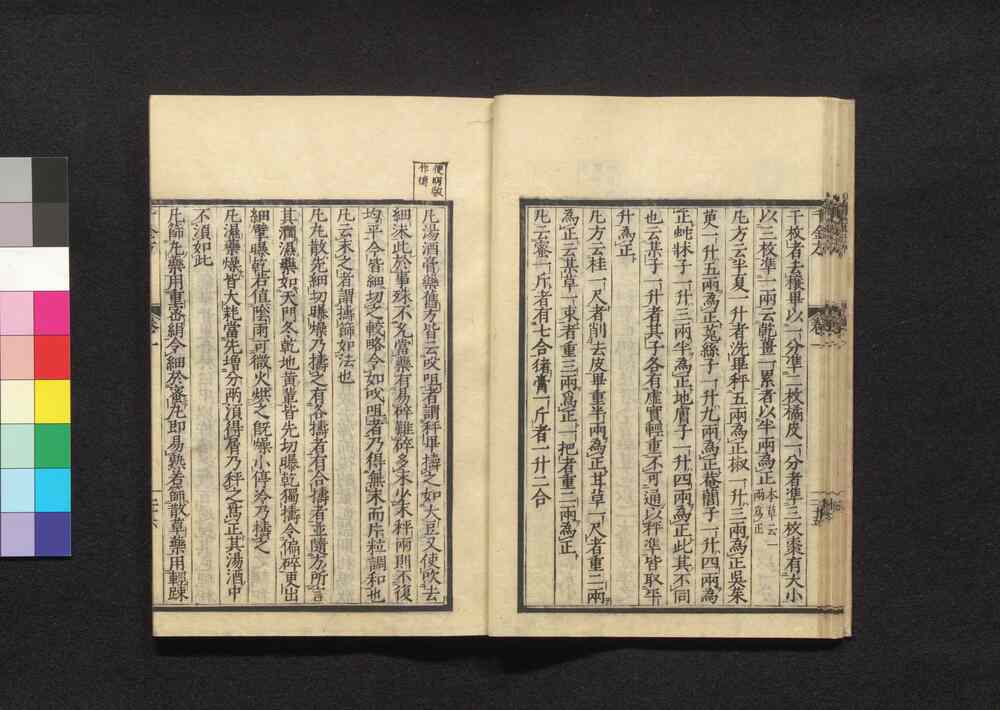 干枚者去穰畢以一分準二枚橘皮一分者準三枚棗有大小
以三枚準一兩云乾薑一累者以半兩為正本草云一兩為正
凡方云半夏一升者洗畢秤五兩為正椒一升三兩為正吳茱
萸一升五兩為正菟絲子一升九兩為正菴䕡子一升四兩為
正蛇牀子一升三兩半為正地膚子一升四兩為正此其不同
也云某子一升者其子各有虛實輕重不可通以秤準皆取平
升為正
凡方云桂一尺者削去皮畢重半兩為正甘草一尺者重二兩
為正云某草一束者重三兩為正一把者重二兩為正
凡云蜜一斤者有七合豬膏一斤者一升二合
凡湯酒膏藥舊方皆云㕮咀者謂秤畢擣之如大豆又使吹去
細末此於事殊不允當藥有易碎難碎多末少末秤兩則不復
均平今皆細切之較略令如㕮咀者乃得無末而片粒調和也
凡云末之者謂擣篩如法也
凡丸散先細切曝燥乃擣之有各擣者有合擣者並隨方所言
其潤濕藥如天門冬乾地黃輩皆先切曝乾獨擣令偏碎更出
細擘曝乾若值陰雨可微火烘之既燥小停冷乃擣之
凡濕藥燥皆大耗當先增分兩須得屑乃秤之為正其湯酒中
不須如此
凡篩丸藥用重密絹令細於蜜丸即易熟若篩散草藥用輕踈